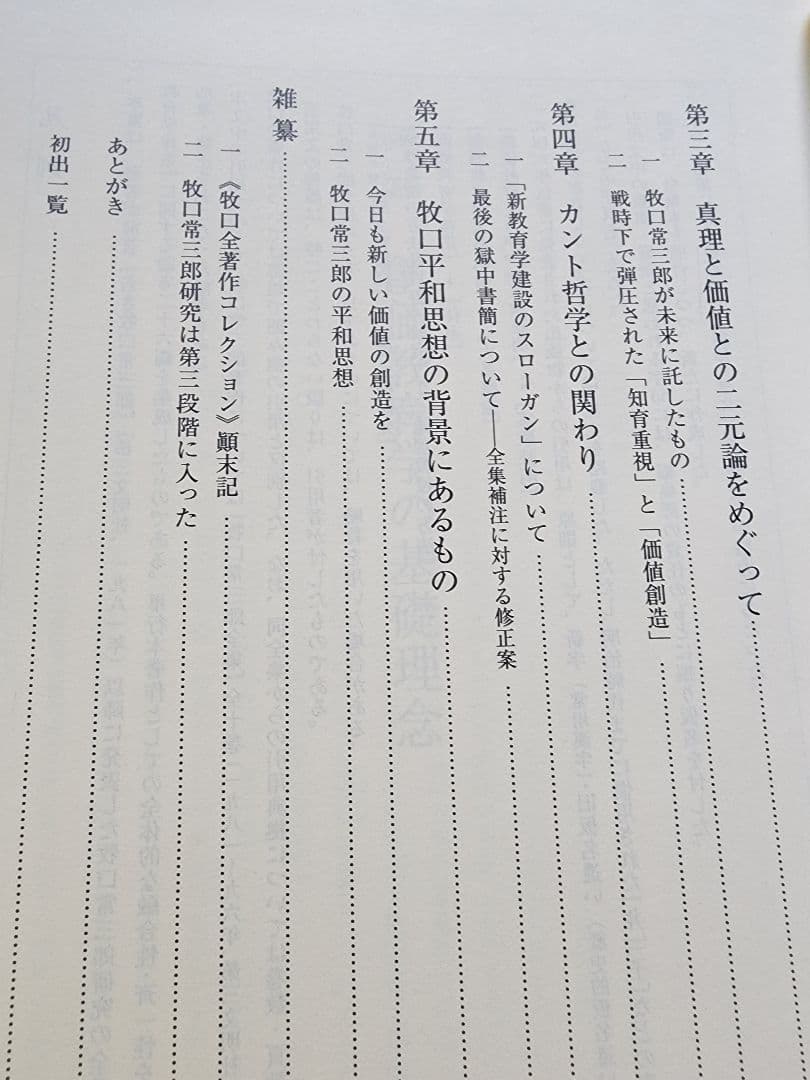 第三章 真理と価値との二元論をめぐって
一 牧口常三郎が未来に託したもの
二 戦時下で弾圧された「知育重視」と「価値創造」
第四章 カント哲学との関わり
一 「新教育学建設のスローガン」について
二 最後の獄中書簡について――全集補注に対する修正案
第五章 牧口平和思想の背景にあるもの
一 今日も新しい価値の創造を
二 牧口常三郎の平和思想
雑纂
一 《牧口全著作コレクション》顚末記
二 牧口常三郎研究は第三段階に入った
あとがき
初出一覧